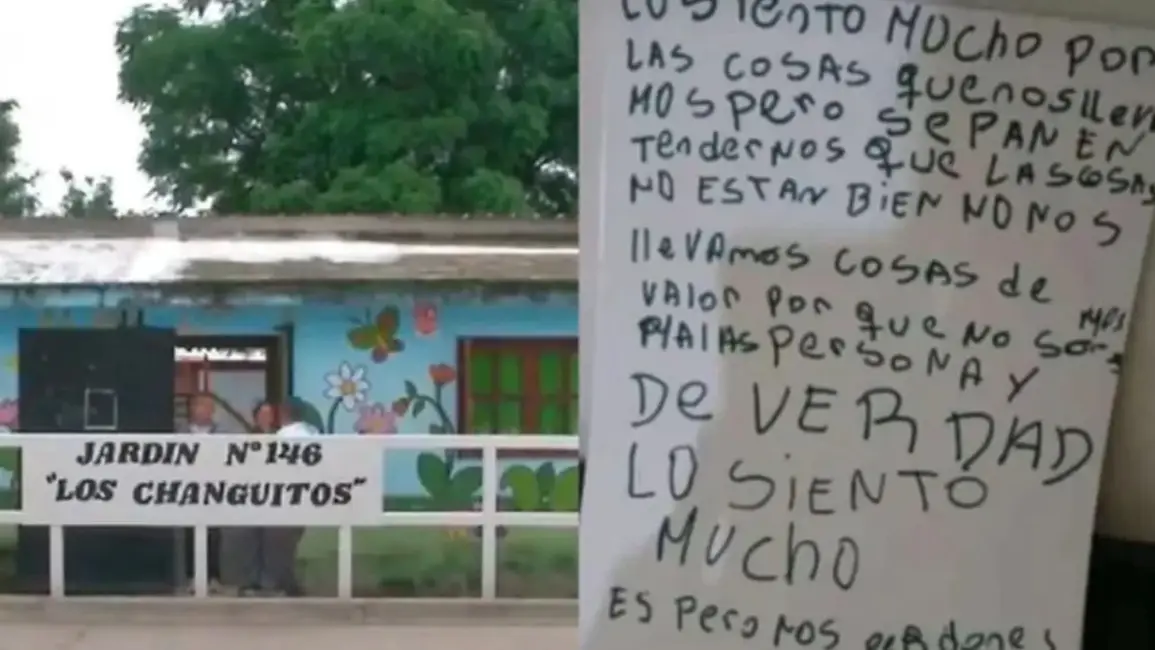 JARDIN N°146
"LOS CHANGUITOS"
LO SIENTO MUCHO POR
LAS COSAS QUENOSllEVA
MOS PERO SEPAN EN
TENDERNOS QUE LASCOSAS
NO ESTAN BIEN NO NOS
llEVAMOS COSAS dE
VALOR POR QUE NO SOMOS
MALAS PERSONA Y
DE VERDAD
LO SIENTO
MUCHO
ES PERO NOS